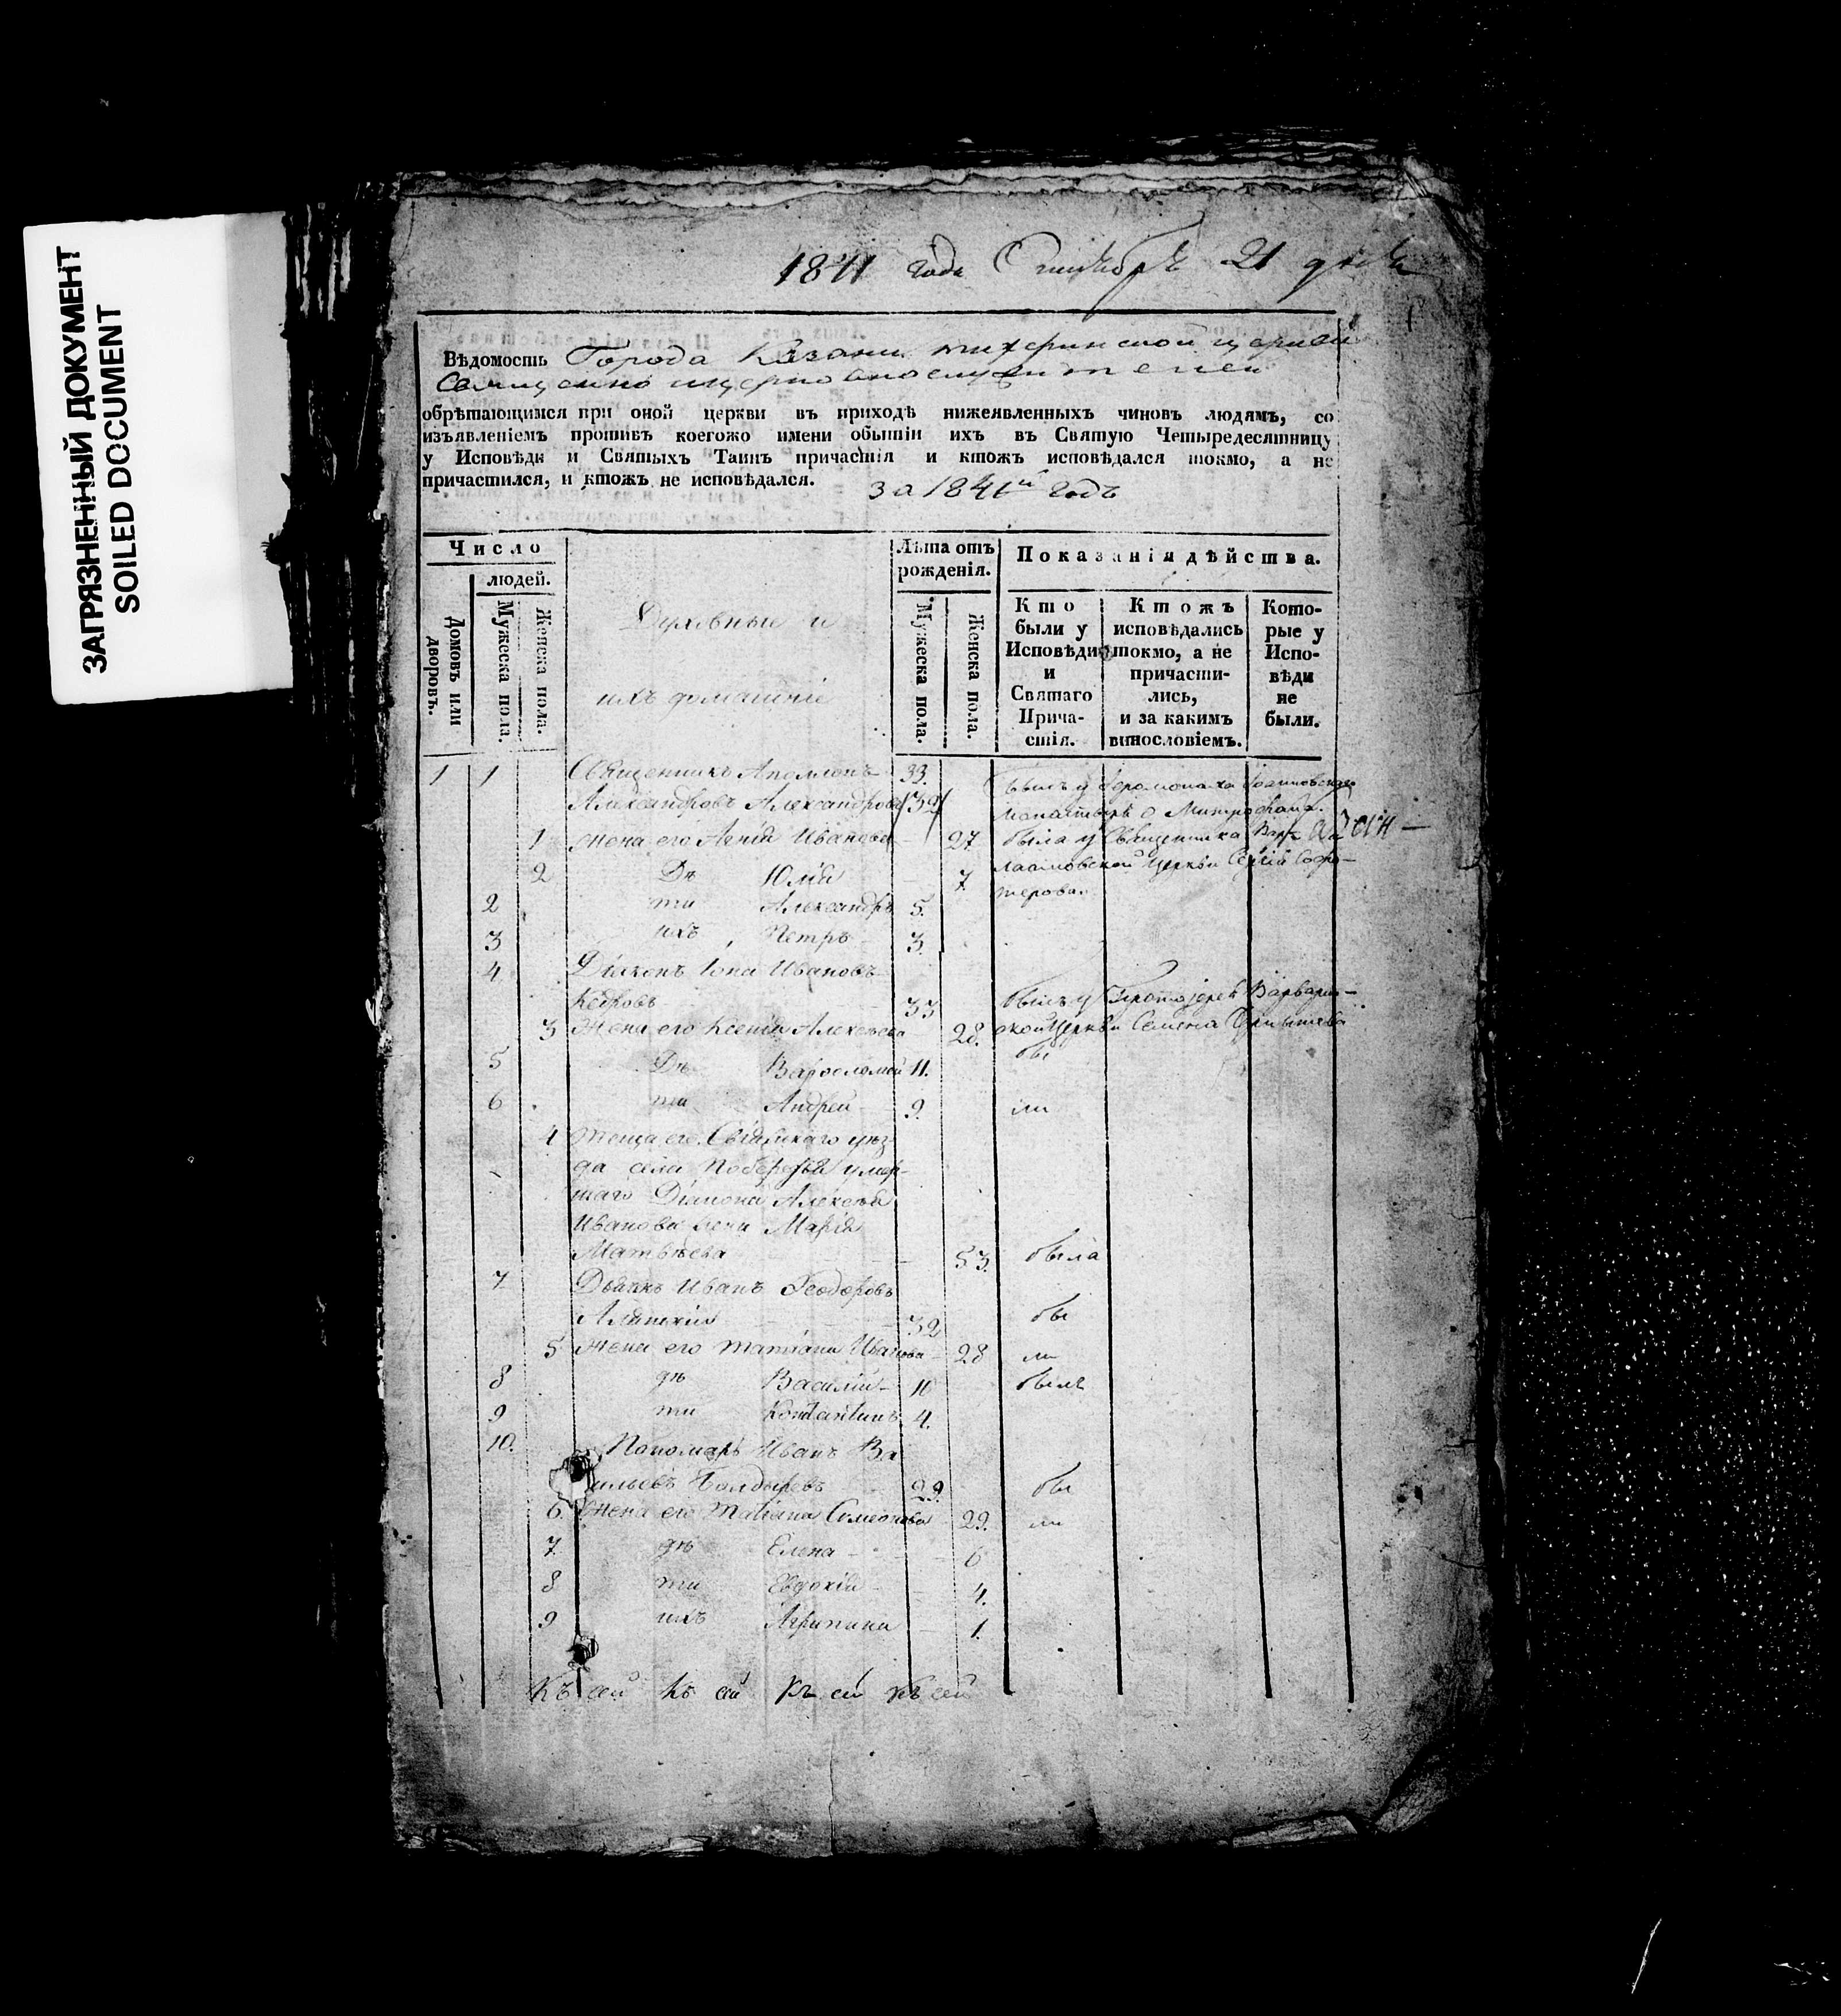 ЗАГРЯЗНЕННЫЙ ДОКУМЕНТ
SOILED DOCUMENT
1841 года Сентября 21 дня
Вѣдомость Города Казани тихвинской церкви
Священно и церковнослужителей
обрѣтающимся при оной церкви въ приходѣ нижеявленныхъ чиновъ людямъ, со
изъявленіемъ противъ коегожо имени бытіи ихъ въ Святую Четыредесятницу
у Исповѣди и Святыхъ Таинъ причастія и ктожъ исповѣдался токмо, а не
причастился, и ктожъ не исповѣдался. за 1841й годъ
Число
людей.
Домовъ или дворовъ.
Мужеска пола.
Женска пола.
Духовные и
ихъ домашніе
Лѣта отъ рожденія.
Мужеска пола.
Женска пола.
Показанія дѣйства.
Кто были у Исповѣди и Святаго Прича-стія.
Ктожъ исповѣдались токмо, а не причасти-лись, и за какимъ винословіемъ.
Кото-рые у Испо-вѣди не были.
1 1 Священникъ Аполлонъ 33. былъ у Іеромонаха Іоанновскаго
Александровъ Александровъ монастыря
1 Жена его Иванова 27 была у Священника Вар
2 Дѣ Юлія 7. лаамовской церкви Сергія Софо-
2 ти Александръ 5. терова.
3 ихъ Петръ 3.
4 Діаконъ Іона Ивановъ
Кедровъ 33 былъ у Протоіерея Варварин-
3 Жена его Ксенія Алексѣева 28. ской Церкви Семена
5 Дѣ Варѳоломей 11. бы
6 ти Андрей 9. ли
4 теща его Свіяжскаго уѣз
да села умер-
шаго Діакона Алексѣя
Иванова жена Марія
Матвѣева 53. была
7 Дьячкъ Иванъ Ѳеодоровъ
32 бы
5 Жена его Татіана Иванова 28 ли
8 дѣ Василій 10 былъ
9 ти Константинъ 4.
10. Пономарь Иванъ Ва
сильевъ Болдыревъ 29. бы
6. Жена его Татіана Симеонова 29. ли
7. дѣ Елена 6
8 ти Евдокія 4.
9 ихъ Агрипина 1.
Къ сей къ сей къ сей къ сей